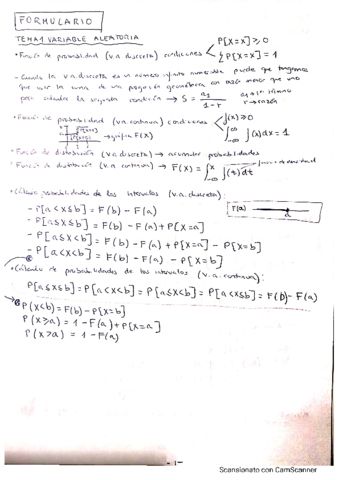 FORMULARIO
TEMA 1 VARIABLE ALEATORIA
• Función de probabilidad (v.a discreta) condiciones P[X=x] ≥ 0
∑ P[X=x] = 1
- Cuando la v.a discreta es un número infinito numerable puede que tengamos
que usar la suma de una progresión geométrica con razón menor que uno
para calcular la segunda condición → S = a1 / 1-r
r → razón
• Función de probabilidad (v.a continua) condiciones f(x) ≥ 0
∫ f(x) dx = 1
→ gráfica F(X)
• Función de distribución (v.a discreta) → acumular probabilidades
• Función de distribución (v.a continua) → F(x) = ∫ f(t) dt
• Cálculo probabilidades de los intervalos (v.a discreta):
- P[a<X≤b] = F(b) - F(a)
- P[a≤X≤b] = F(b) - F(a) + P[X=a]
- P[a≤X<b] = F(b) - F(a) + P[X=a] - P[X=b]
- P[a<X<b] = F(b) - F(a) - P[X=b]
• Cálculo de probabilidades de los intervalos (v.a continua):
P[a≤X≤b] = P[a<X<b] = P[a≤X<b] = P[a<X≤b] = F(b) - F(a)
P(X<b) = F(b) - P[X=b]
P(X≥a) = 1 - F(a) + P[X=a]
P(X>a) = 1 - F(a)
- 1 -
Scansionato con CamScanner